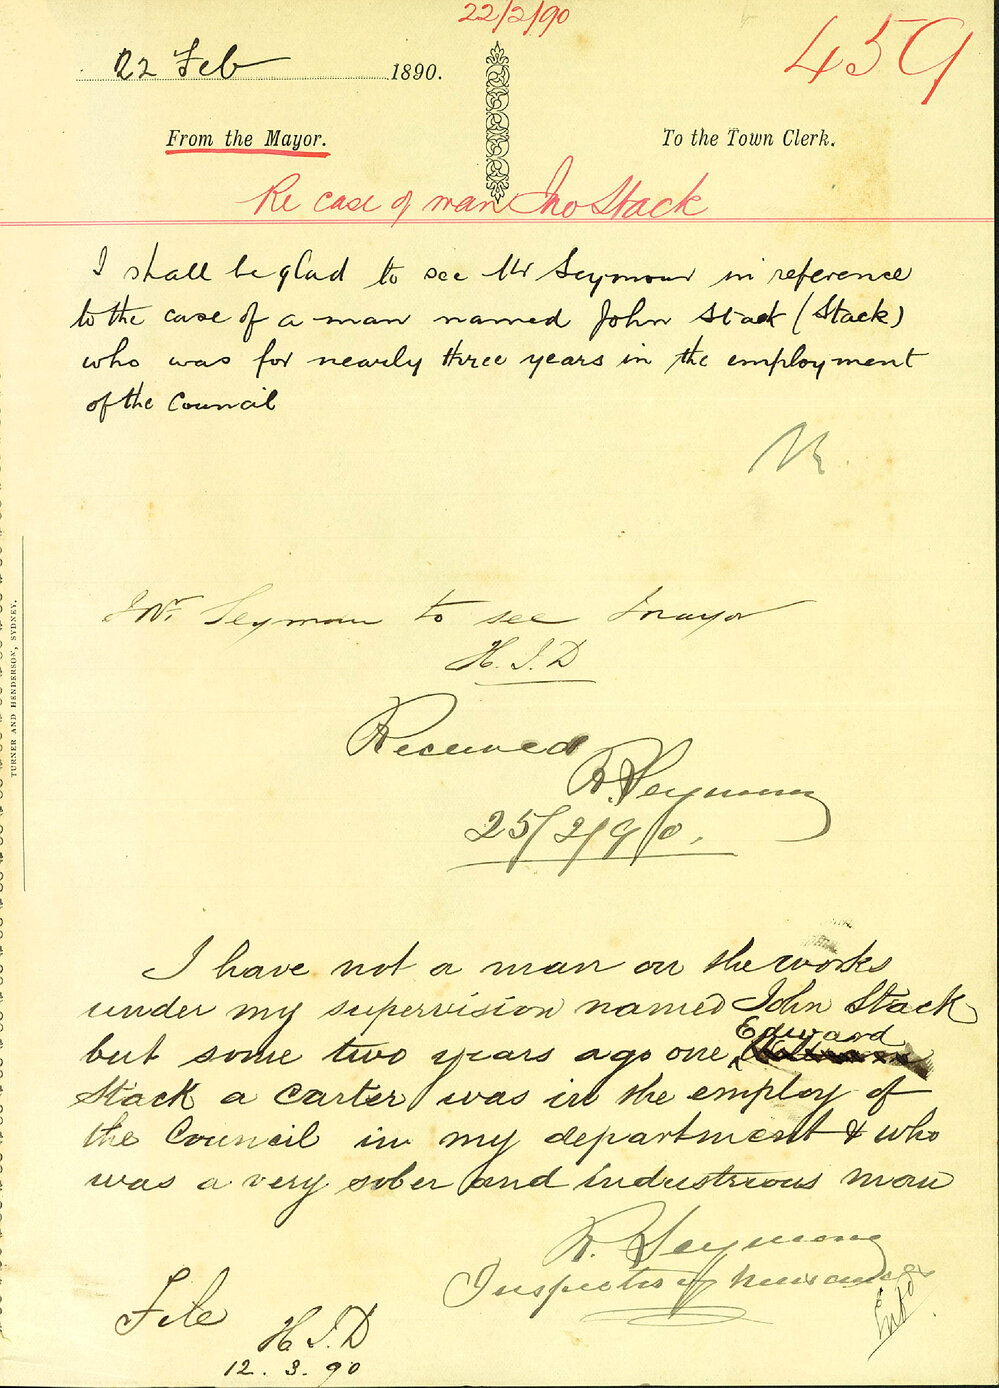 22/2/90
22 Feb 1890.
459
From the Mayor.
To the Town Clerk.
Re case of man Jno Stack
I shall be glad to see Mr Seymour in reference
to the case of a man named John Stact (Stack)
who was for nearly three years in the employment
of the Council
Mr. Seymour to see Mayor
H. J. D
Received
R. Seymour
25/2/90.
TURNER AND HENDERSON, SYDNEY.
I have not a man on the works
under my supervision named John Stack
but some two years ago one Edward
Stack a carter was in the employ of
the Council in my department & who
was a very sober and industrious man
R. Seymour
Inspector of Nuisances
File
H. J. D
12.3.90